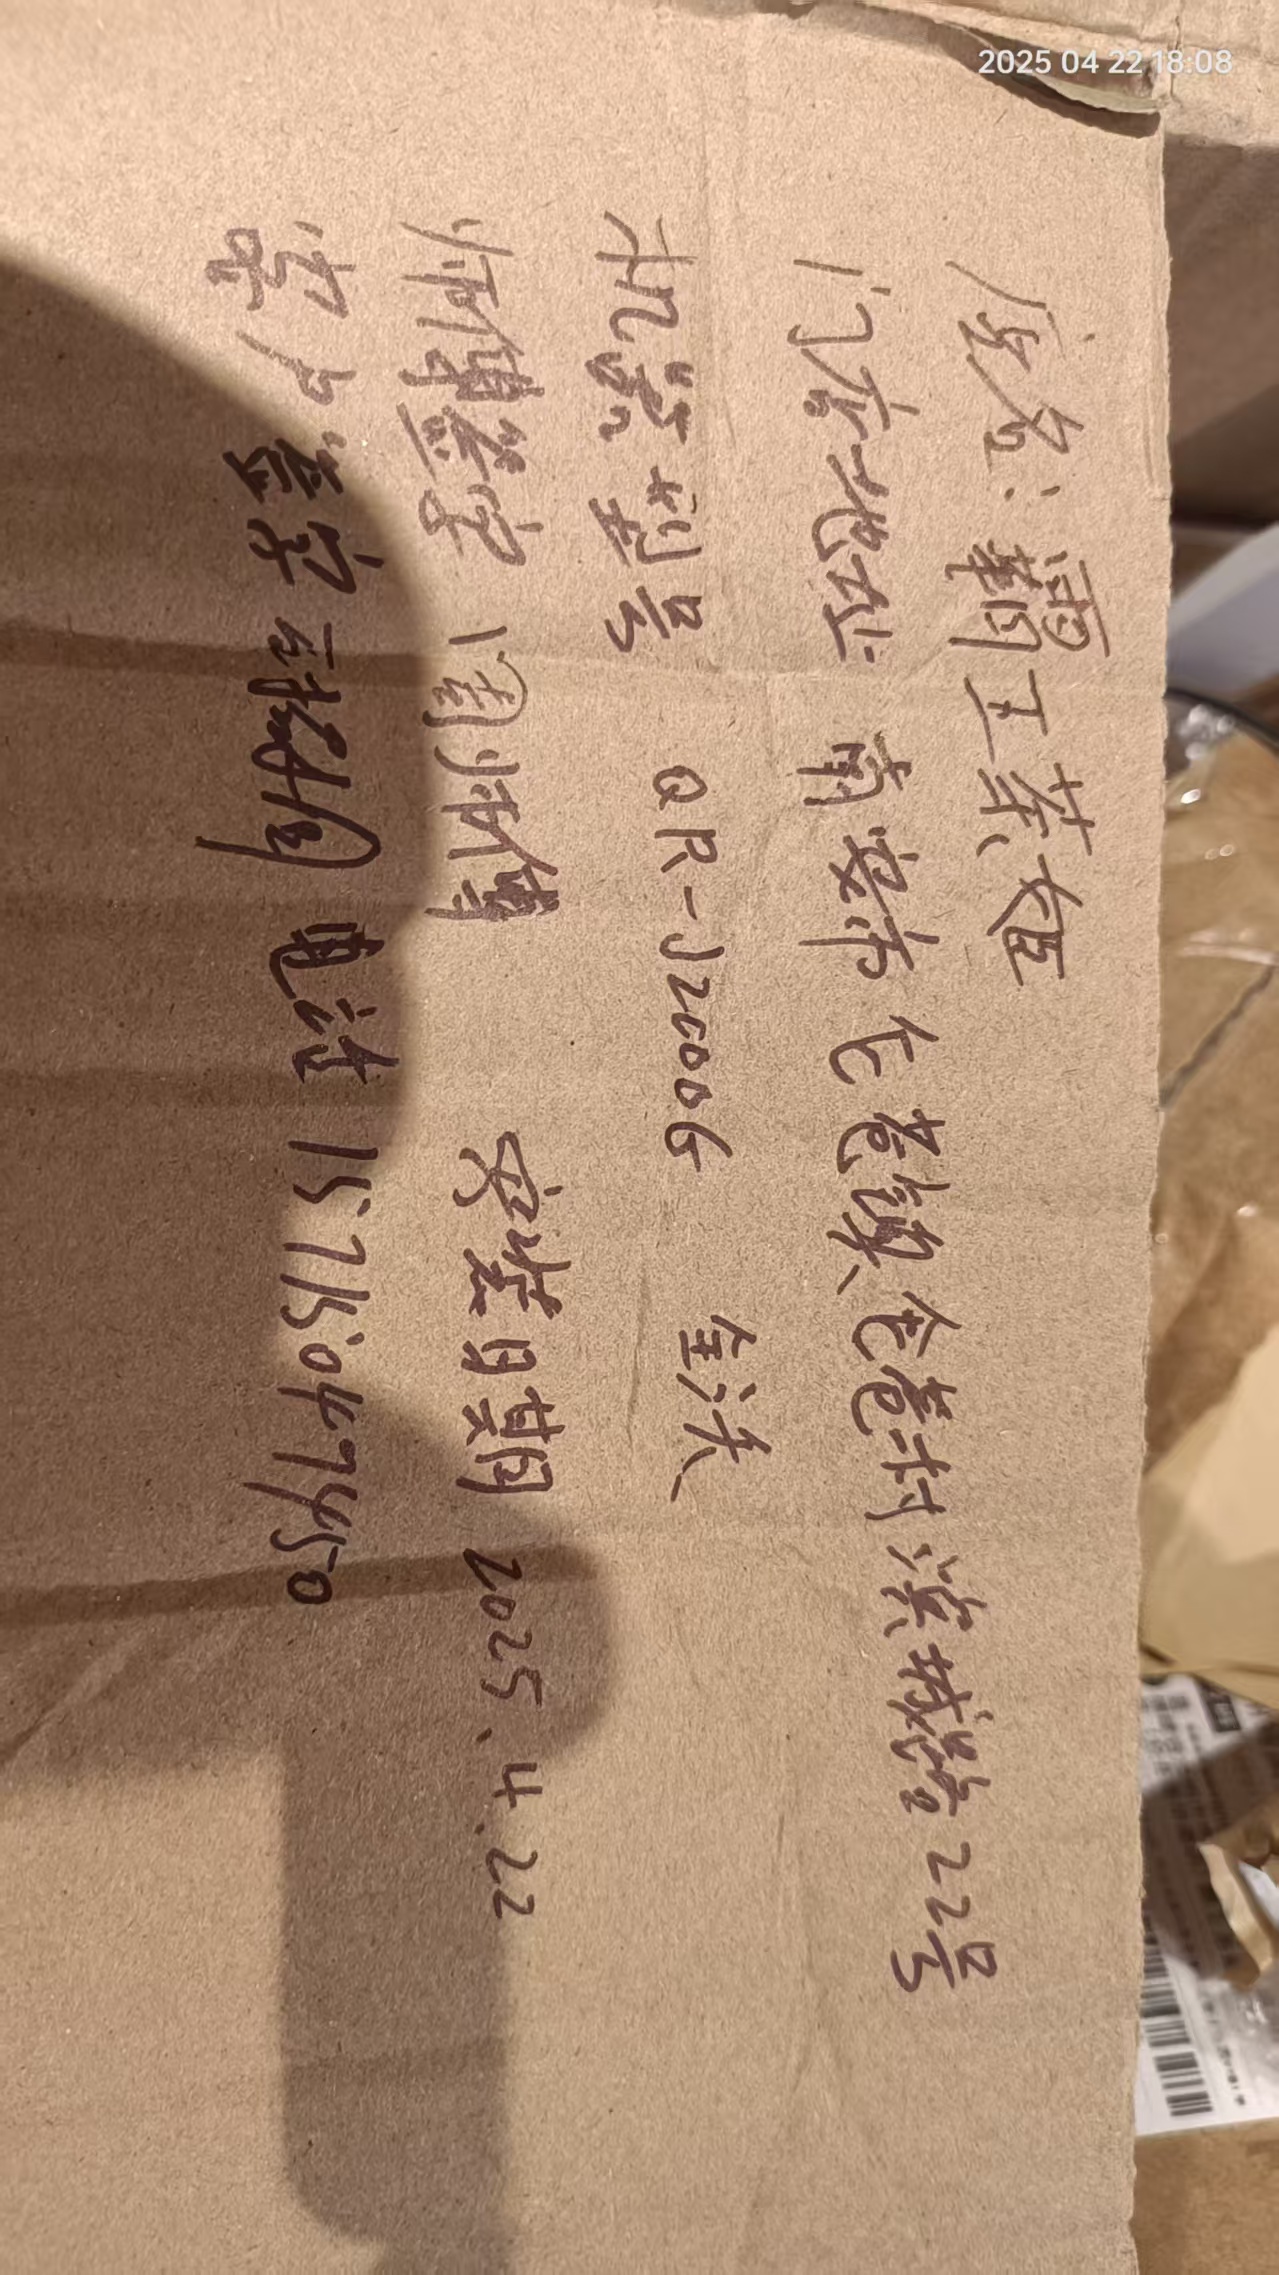 2025 04 22 18:08
店名：霸王茶姬
门店地址 南安市仑苍镇仑苍村滨城路22号
机器型号 QR-J200G 全沃
师傅签字 周师傅 安装日期 2025.4.22
客户签字 电话 15715047450